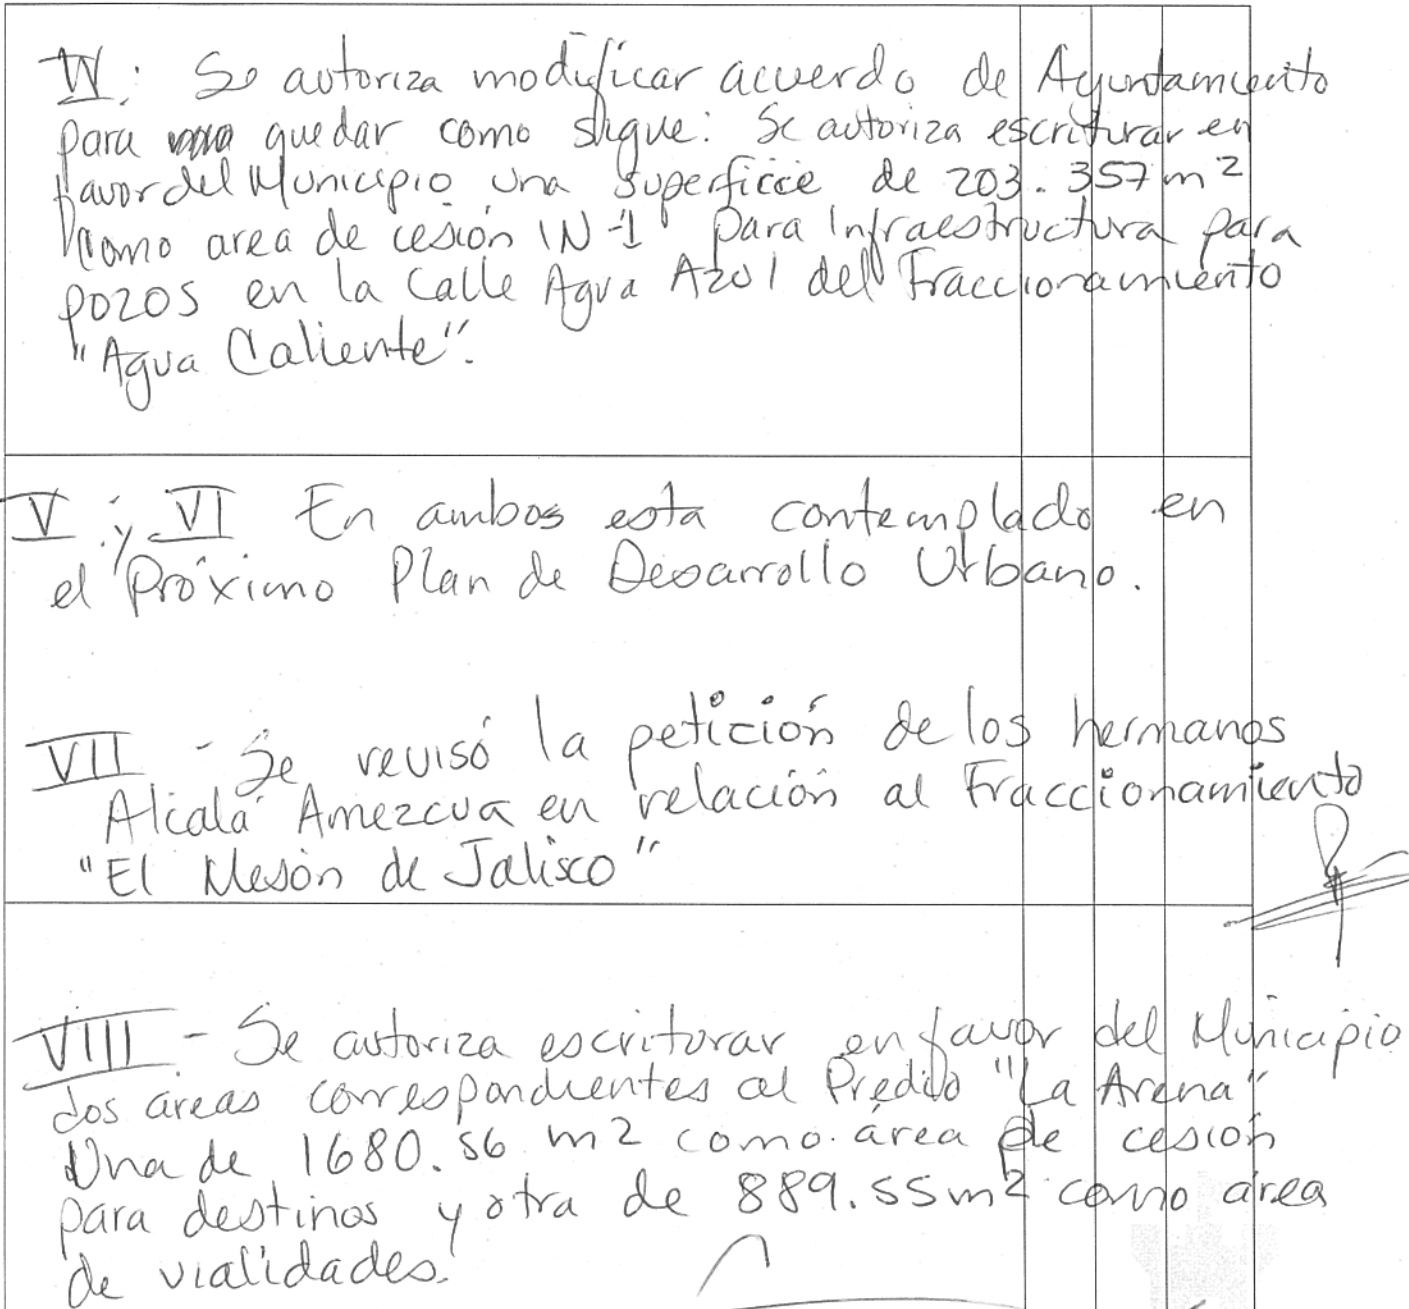 IV: Se autoriza modificar acuerdo de Ayuntamiento
para quedar como sigue: Se autoriza escriturar en
favor del Municipio una superficie de 203.357 m2
como area de cesión IN-1 para Infraestructura para
pozos en la Calle Agua Azul del Fraccionamiento
"Agua Caliente".
V y VI En ambos esta contemplado en
el Próximo Plan de Desarrollo Urbano.
VII - Se revisó la petición de los hermanos
Alcalá Amezcua en relación al Fraccionamiento
"El Mesón de Jalisco"
VIII - Se autoriza escriturar en favor del Municipio
dos áreas correspondientes al Predio "La Arena"
Una de 1680.56 m2 como área de cesión
para destinos y otra de 889.55 m2 como área
de vialidades.